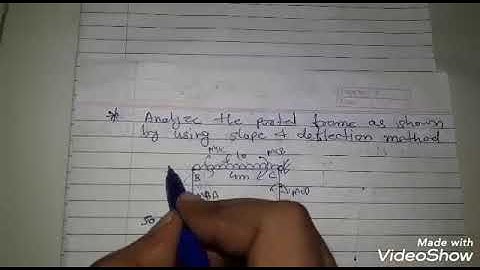 * Analyze the portal frame as shown
by using slope & deflection method
10
B 4m C
Made with
VideoShow